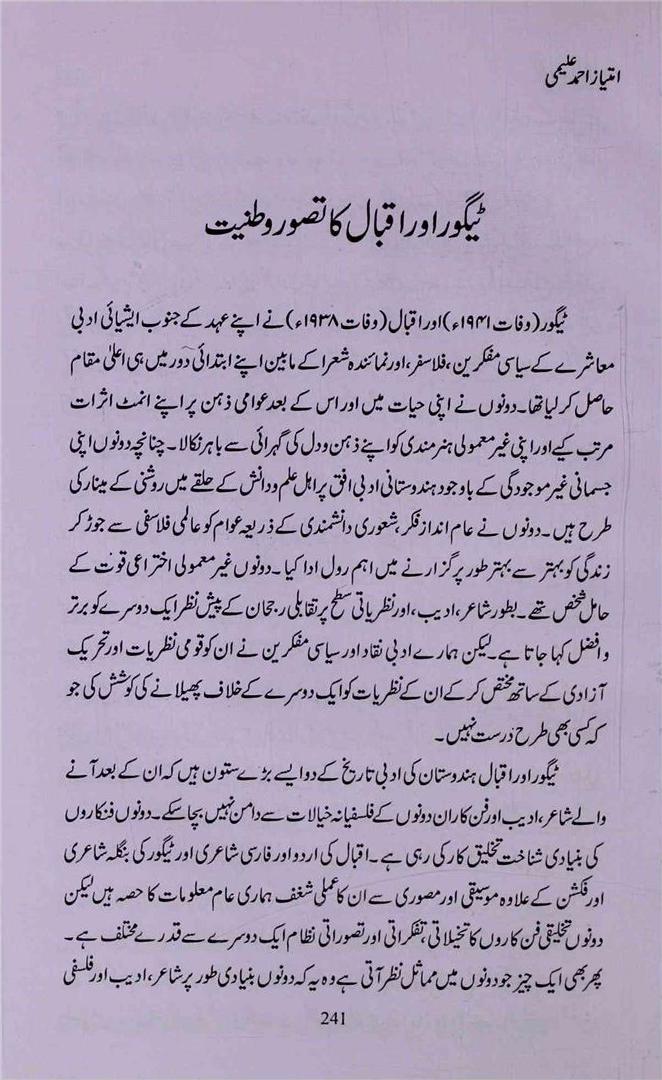 امتیاز احمد علیمی
ٹیگور اور اقبال کا تصور وطنیت
ٹیگور (وفات ۱۹۴۱ء) اور اقبال (وفات ۱۹۳۸ء) نے اپنے عہد کے جنوب ایشیائی ادبی
معاشرے کے سیاسی مفکرین، فلاسفر، اور نمائندہ شعرا کے مابین اپنے ابتدائی دور میں ہی اعلیٰ مقام
حاصل کر لیا تھا۔ دونوں نے اپنی حیات میں اور اس کے بعد عوامی ذہن پر اپنے انمٹ اثرات
مرتب کیے اور اپنی غیر معمولی ہنر مندی کو اپنے ذہن و دل کی گہرائی سے باہر نکالا۔ چنانچہ دونوں اپنی
جسمانی غیر موجودگی کے باوجود ہندوستانی ادبی افق پر اہل علم و دانش کے حلقے میں روشنی کے مینار کی
طرح ہیں۔ دونوں نے عام انداز فکر، شعوری دانشمندی کے ذریعہ عوام کو عالمی فلاسفی سے جوڑ کر
زندگی کو بہتر سے بہتر طور پر گزارنے میں اہم رول ادا کیا۔ دونوں غیر معمولی اختراعی قوت کے
حامل شخص تھے۔ بطور شاعر، ادیب، اور نظریاتی سطح پر تقابلی رجحان کے پیش نظر ایک دوسرے کو برتر
و افضل کہا جاتا ہے۔ لیکن ہمارے ادبی نقاد اور سیاسی مفکرین نے ان کو قومی نظریات اور تحریک
آزادی کے ساتھ مختص کر کے ان کے نظریات کو ایک دوسرے کے خلاف پھیلانے کی کوشش کی جو
کہ کسی بھی طرح درست نہیں۔
ٹیگور اور اقبال ہندوستان کی ادبی تاریخ کے دو ایسے بڑے ستون ہیں کہ ان کے بعد آنے
والے شاعر، ادیب اور فن کار ان دونوں کے فلسفیانہ خیالات سے دامن نہیں بچا سکے۔ دونوں فنکاروں
کی بنیادی شناخت تخلیق کار کی رہی ہے۔ اقبال کی اردو اور فارسی شاعری اور ٹیگور کی بنگلہ شاعری
اور فکشن کے علاوہ موسیقی اور مصوری سے ان کا عملی شغف ہماری عام معلومات کا حصہ ہیں لیکن
دونوں تخلیقی فن کاروں کا تخیلاتی، تفکراتی اور تصوراتی نظام ایک دوسرے سے قدرے مختلف ہے۔
پھر بھی ایک چیز جو دونوں میں مماثل نظر آتی ہے وہ یہ کہ دونوں بنیادی طور پر شاعر، ادیب اور فلسفی
241